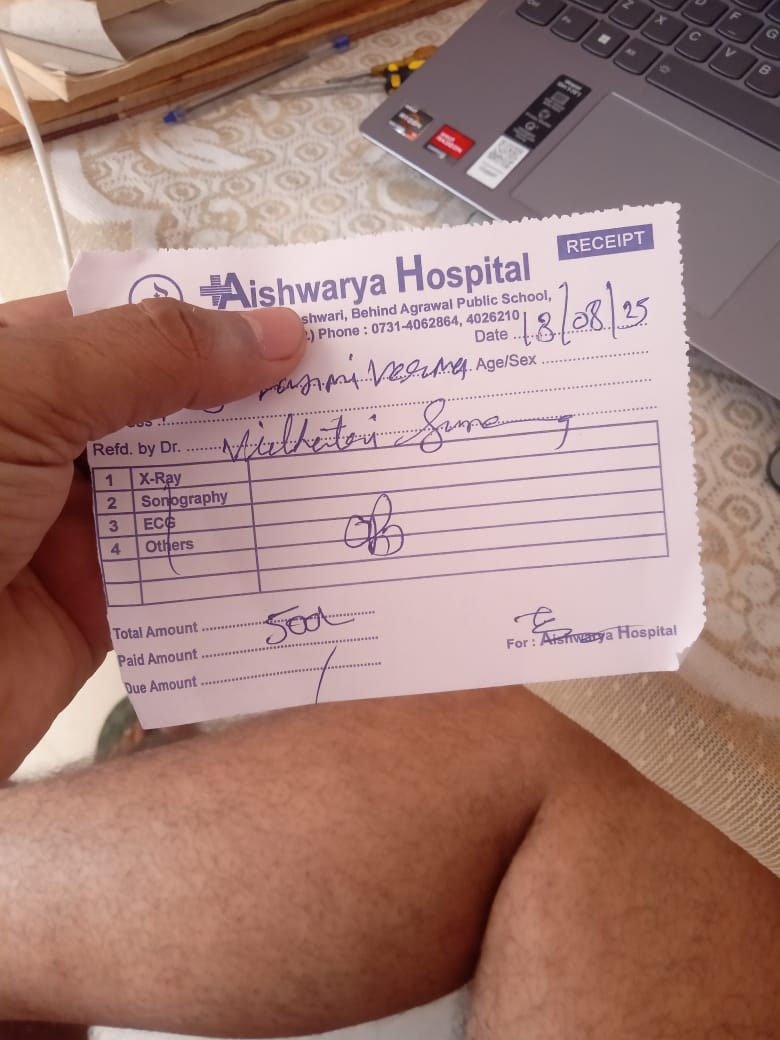 RECEIPT
Aishwarya Hospital
shwari, Behind Agrawal Public School,
.) Phone : 0731-4062864, 4026210
Date 18/08/25
Verma Age/Sex
Refd. by Dr.
1 X-Ray
2 Sonography
3 ECG
4 Others
Total Amount 500/-
Paid Amount
Due Amount /
For : Aishwarya Hospital